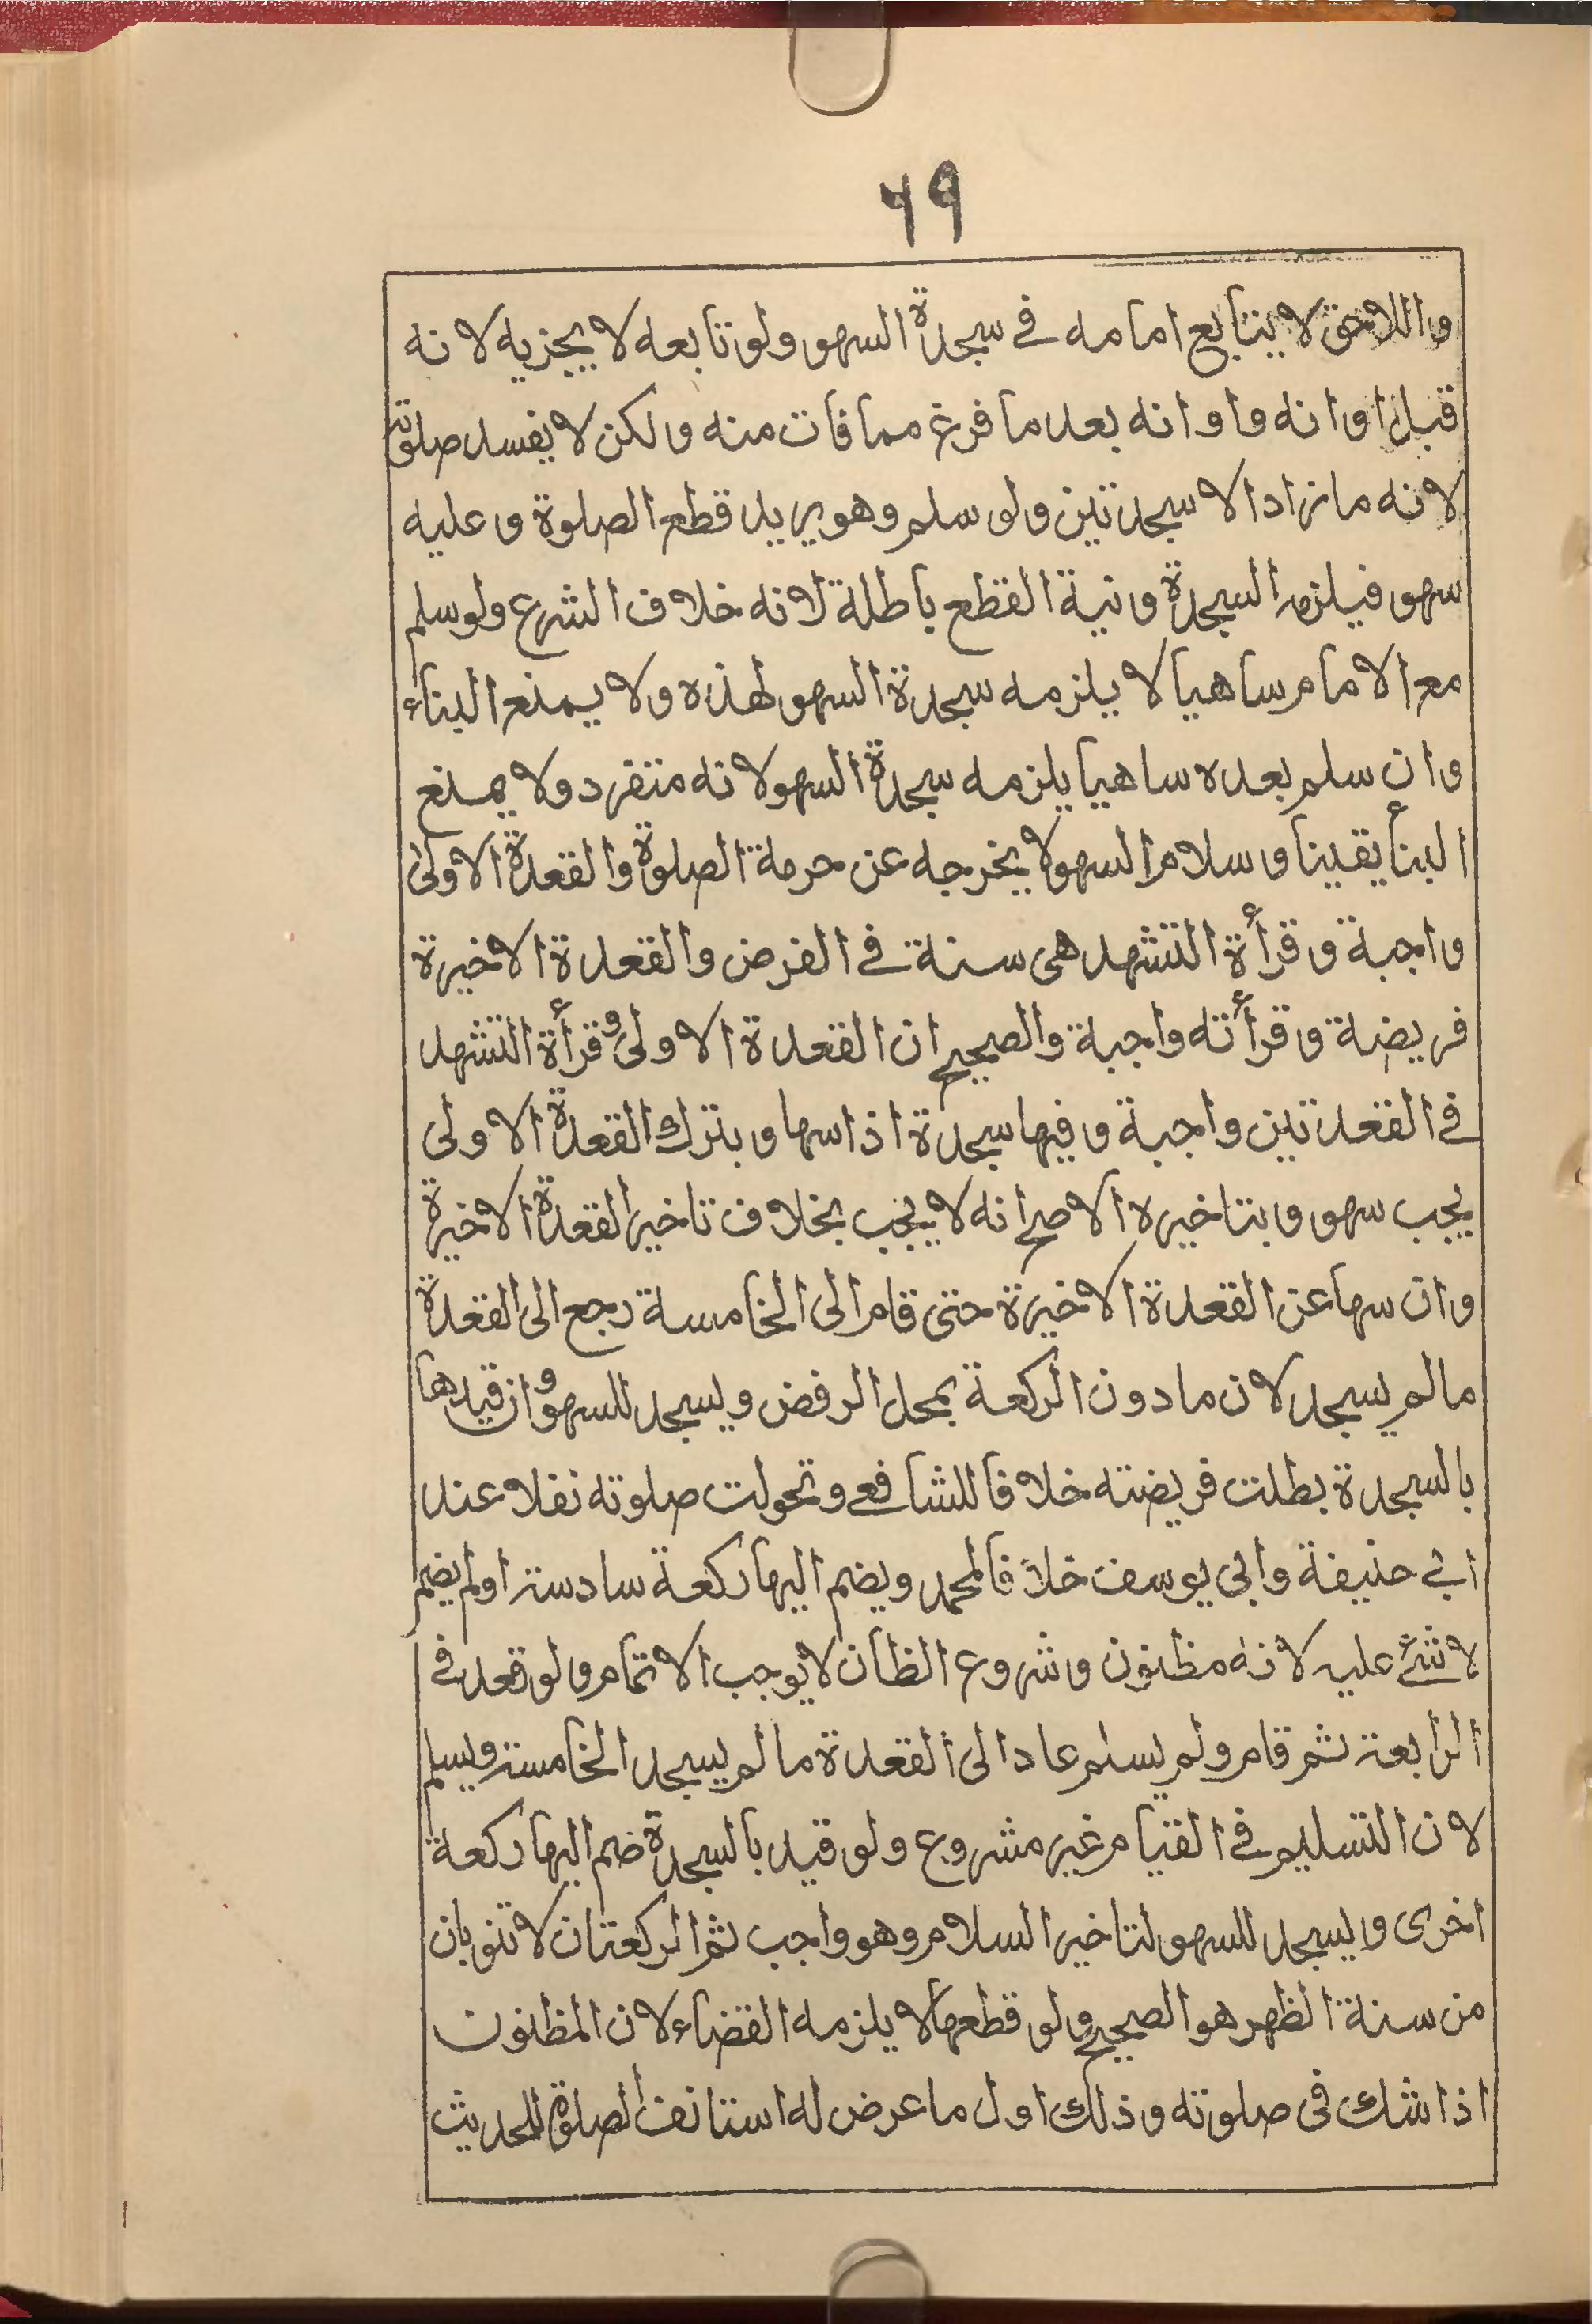 ٦٩
واللاحق لا يتابع امامه في سجدة السهو ولو تابعه لا يجزيه لانه
قبل اوانه واوانه بعد ما فرغ مما فات منه ولكن لا يفسد صلوته
لانه ما زاد الا سجدتين ولو سلم وهو يريد قطع الصلوة وعليه
سهو فيلزمه السجدة ونية القطع باطلة لانه خلاف الشرع ولو سلم
مع الامام ساهيا لا يلزمه سجدة السهو لهذه ولا يمنع البناء
وان سلم بعده ساهيا يلزمه سجدة السهو لانه منفرد ولا يمنع
البنأ يقينا وسلام السهو لا يخرجه عن حرمة الصلوة والقعدة الاولى
واجبة وقرأة التشهد هى سنة في الفرض والقعدة الاخيرة
فريضة وقرأته واجبة والصحيح ان القعدة الاولى وقرأة التشهد
في القعدتين واجبة وفيها سجدة اذا سها وبترك القعدة الاولى
يجب سهو وبتاخيره الاصح انه لا يجب بخلاف تاخير القعدة الاخيرة
وان سها عن القعدة الاخيرة حتى قام الى الخامسة رجع الى القعدة
مالم يسجد لان مادون الركعة بمحل الرفض ويسجد للسهو وان قيدها
بالسجدة بطلت فريضته خلافا للشافعي وتحولت صلوته نفلا عند
ابي حنيفة وابي يوسف خلافا لمحمد ويضم اليها ركعة سادسة اولم يضم
لا شئ عليه لانه مظنون وشروع الظان لا يوجب الاتمام ولو قعد في
الرابعة ثم قام ولم يسلم عاد الى القعدة مالم يسجد الخامسة ويسلم
لان التسليم في القيام غير مشروع ولو قيد بالسجدة ضم اليها ركعة
اخرى ويسجد للسهو لتاخير السلام وهو واجب ثم الركعتان لا تنوبان
من سنة الظهر هو الصحيح ولو قطعها لا يلزمه القضاء لان المظنون
اذا شك في صلوته وذلك اول ما عرض له استانف الصلوة للحديث